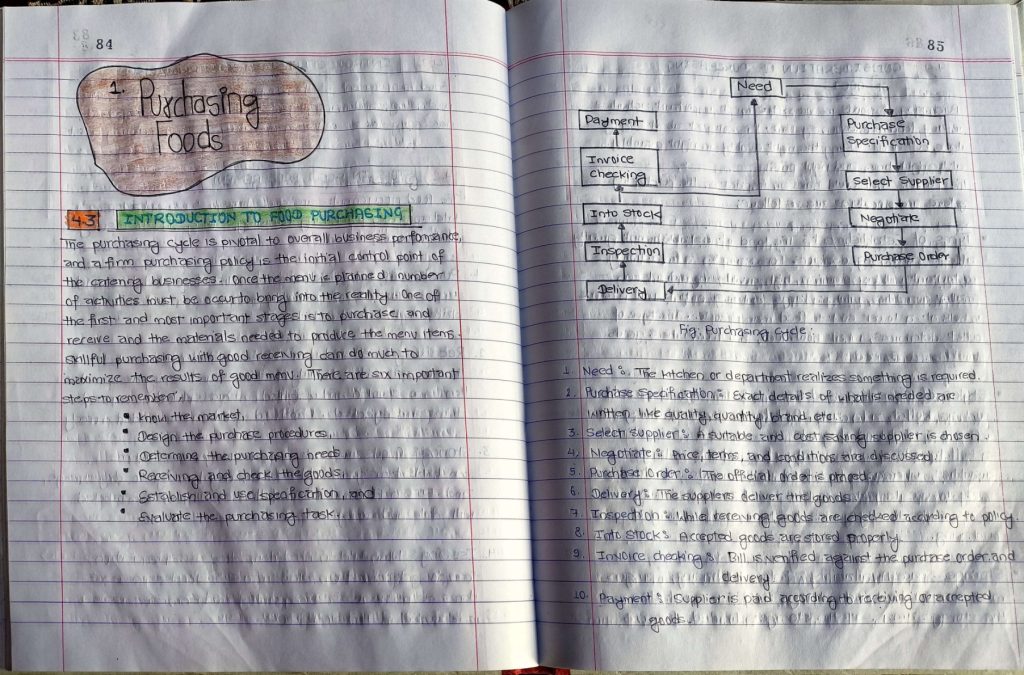 84
1. Purchasing
Foods
4.3 INTRODUCTION TO FOOD PURCHASING
The purchasing cycle is pivotal to overall business performance,
and a firm purchasing policy is the initial control point of
the catering businesses. Once the menu is planned, number
of activities must be occur to bring into the reality. One of
the first and most important stages is to purchase and
receive and the materials needed to produce the menu items.
skillful purchasing with good receiving can do much to
maximize the results of good menu. There are six important
steps to remember:
• Know the market,
• Design the purchase procedures,
• Determing the purchasing needs
• Receiving and check the goods
• Establish and use specification, and
• Evaluate the purchasing task.
85
Need
Payment
Purchase
Specification
Invoice
Checking
Select Supplier
Into Stock
Negotiate
Inspection
Purchase Order
Delivery
Fig: Purchasing Cycle:
1. Need: The kitchen or department realizes something is required.
2. Purchase Specification: Exact details of what is needed are
written like quality, quantity, brand, etc.
3. Select Supplier: A suitable and cost saving supplier is chosen.
4. Negotiate: Price, terms, and conditions are discussed.
5. Purchase Order: The official order is placed.
6. Delivery: The suppliers deliver the goods.
7. Inspection: While receiving goods are checked according to policy.
8. Into Stock: Accepted goods are stored properly.
9. Invoice checking: Bill is verified against the purchase order and
delivery.
10. Payment: Supplier is paid according to receiving or accepted
goods.